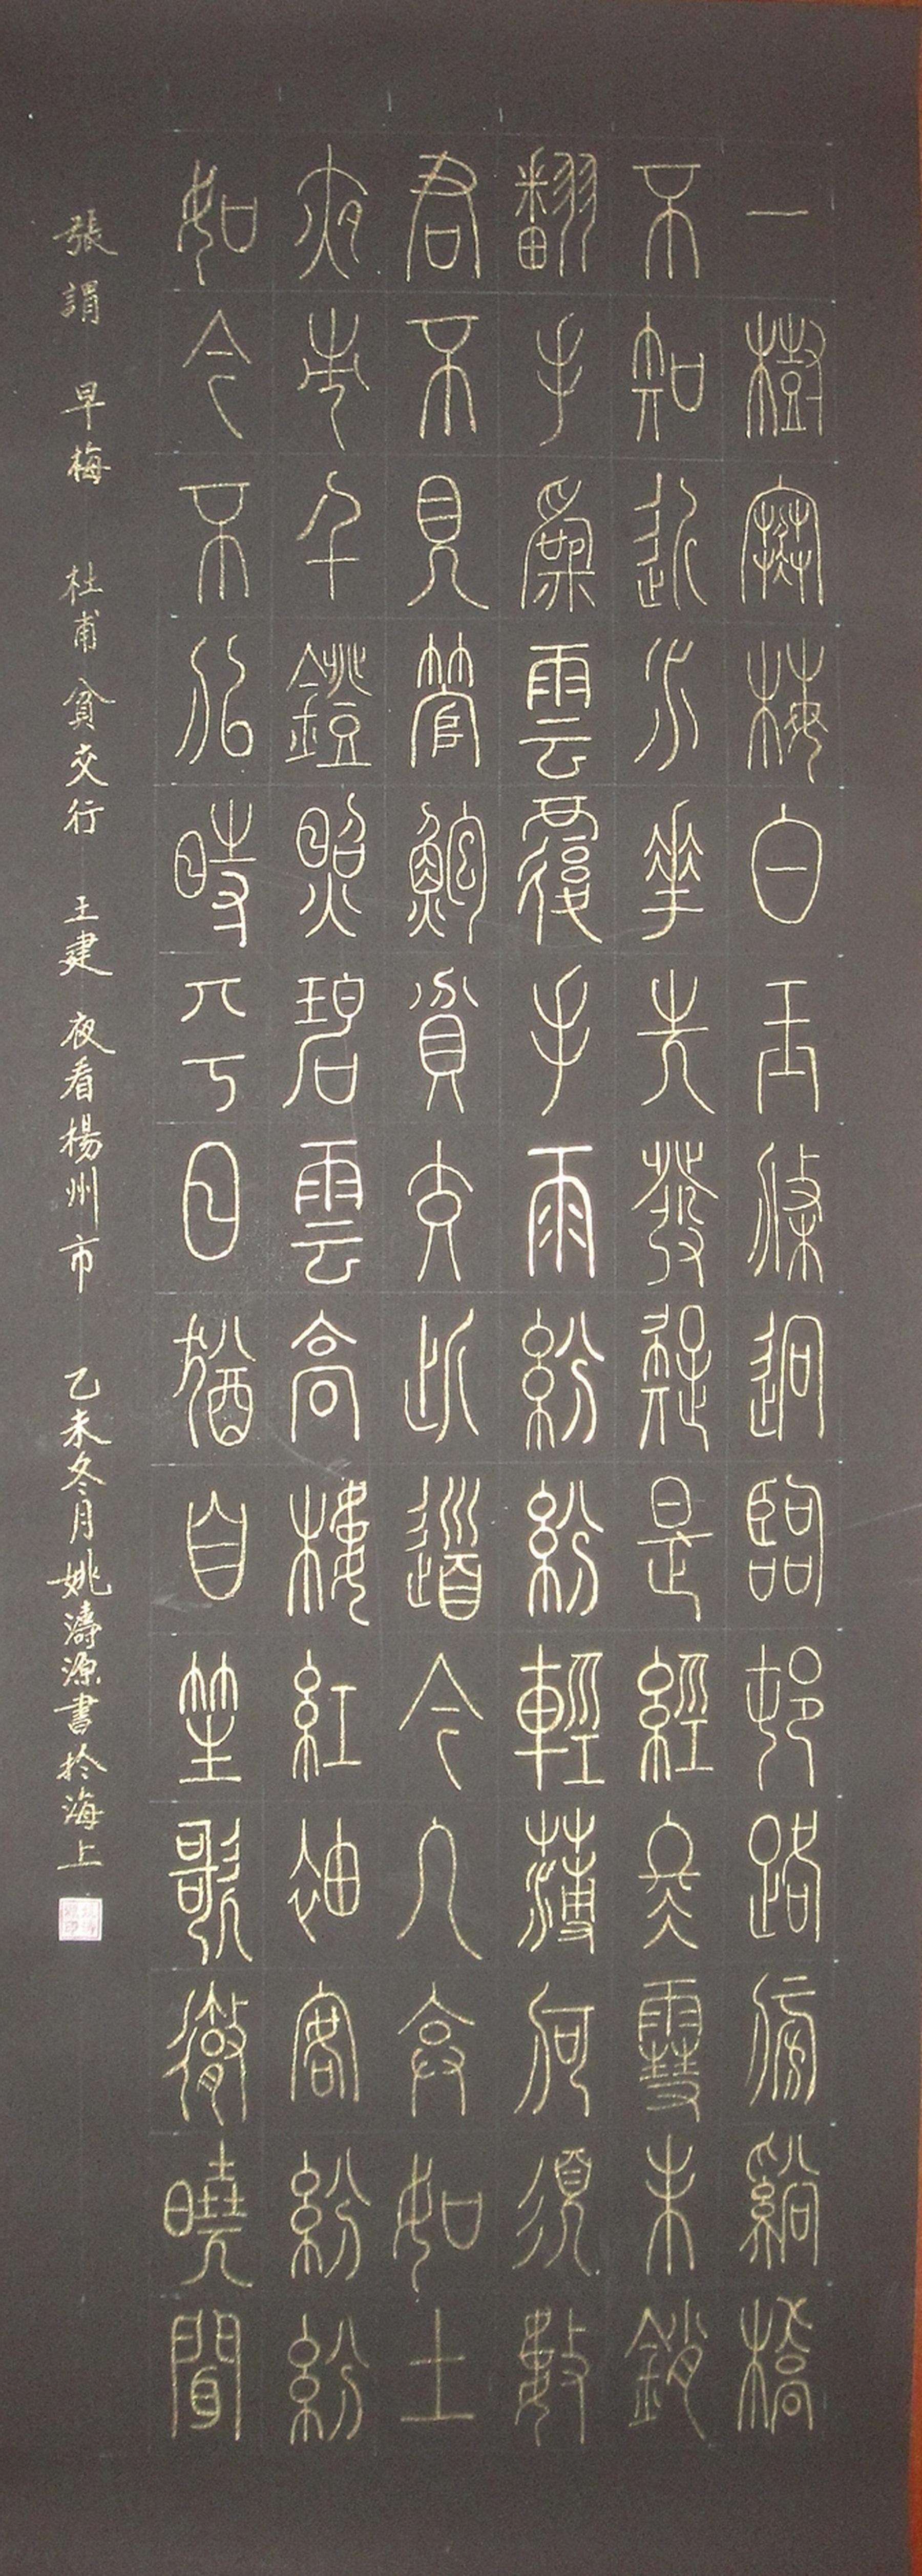 一樹寒梅白玉條迥臨邨路傍谿橋
不知近水華先發疑是經冬雪未銷
翻手爲雲覆手雨紛紛輕薄何須數
君不見管鮑貧交此道今人棄如土
夜市千鐙照碧雲高樓紅袖客紛紛
如今不似時平日猶自笙歌徹曉聞
張謂 早梅 杜甫貧交行 王建 夜看楊州市 乙未冬月姚濤源書於海上